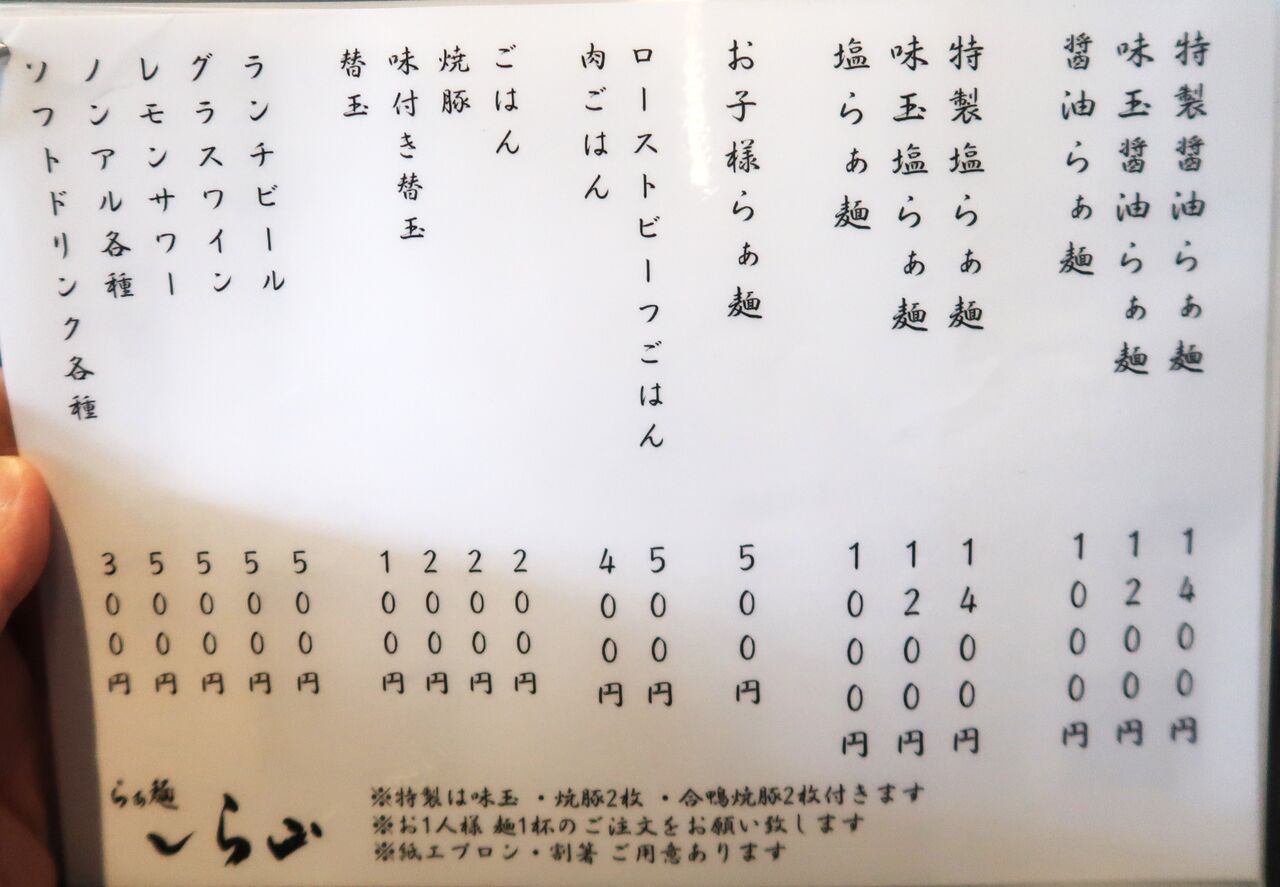 特製醤油らぁ麺 1400円
味玉醤油らぁ麺 1200円
醤油らぁ麺 1000円
特製塩らぁ麺 1400円
味玉塩らぁ麺 1200円
塩らぁ麺 1000円
お子様らぁ麺 500円
ローストビーフごはん 500円
肉ごはん 400円
ごはん 200円
焼豚 200円
味付き替玉 200円
替玉 100円
ランチビール 500円
グラスワイン 500円
レモンサワー 500円
ノンアル各種 500円
ソフトドリンク各種 300円
※特製は味玉・焼豚2枚・合鴨焼豚2枚付きます
※お1人様 麺1杯のご注文をお願い致します
※紙エプロン・割箸 ご用意あります
らぁ麺
しら山